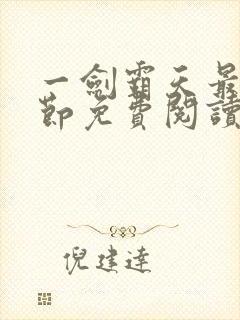 一劍霸天最
節免費閱讀
倪建達